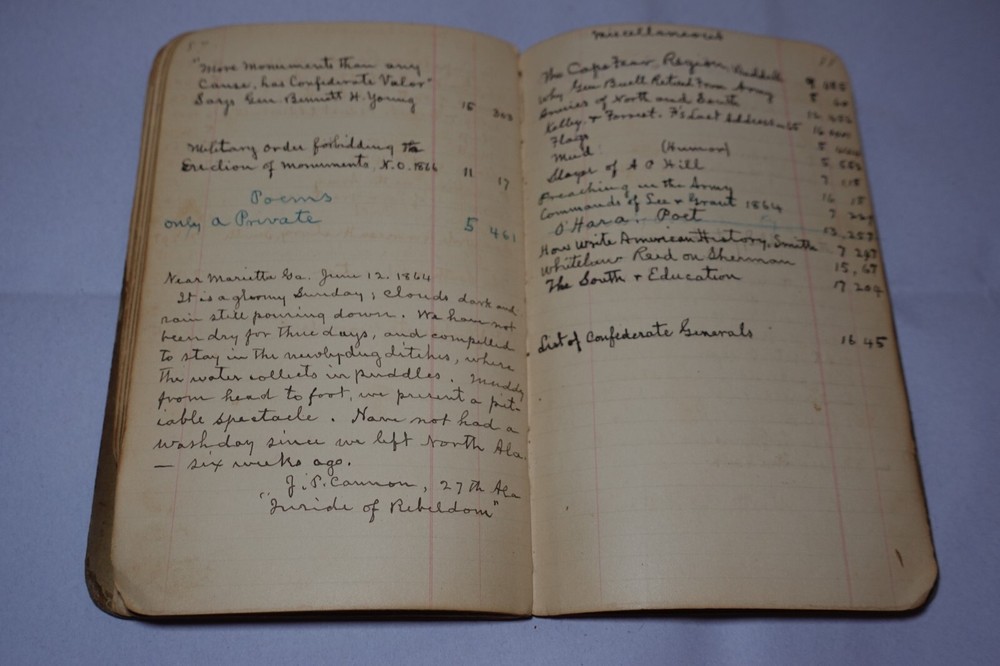 "More Monuments than any
Cause, has Confederate Valor"
Says Gen Bennett H. Young 15 303
Military order forbidding the
Erection of monuments, N.O. 1866 11 17
Poems
only a Private 5 461
Near Marietta Ga. June 12. 1864
It is a gloomy Sunday; clouds dark and
rain still pouring down. We have not
been dry for three days, and compelled
to stay in the newly dug ditches, where
the water collects in puddles. Muddy
from head to foot, we present a pit-
iable spectacle. Have not had a
wash day since we left North Ala.
— six weeks ago.
J. P. Cannon, 27th Ala
"Inside of Rebeldom"
Miscellaneous
The Cape Fear Region,
Why Gen Buell Retired From Army
Armies of North and South
Kelley & Forrest. F's Last Address
Flags
Mud (Humor)
Slayer of A P Hill
Preaching in the Army
Commands of Lee & Grant 1864
O'Hara. Poet 13, 257
How Write American History, Smith 7 297
Whitelaw Reid on Sherman 15, 67
The South & Education 17 204
List of Confederate Generals 16 45